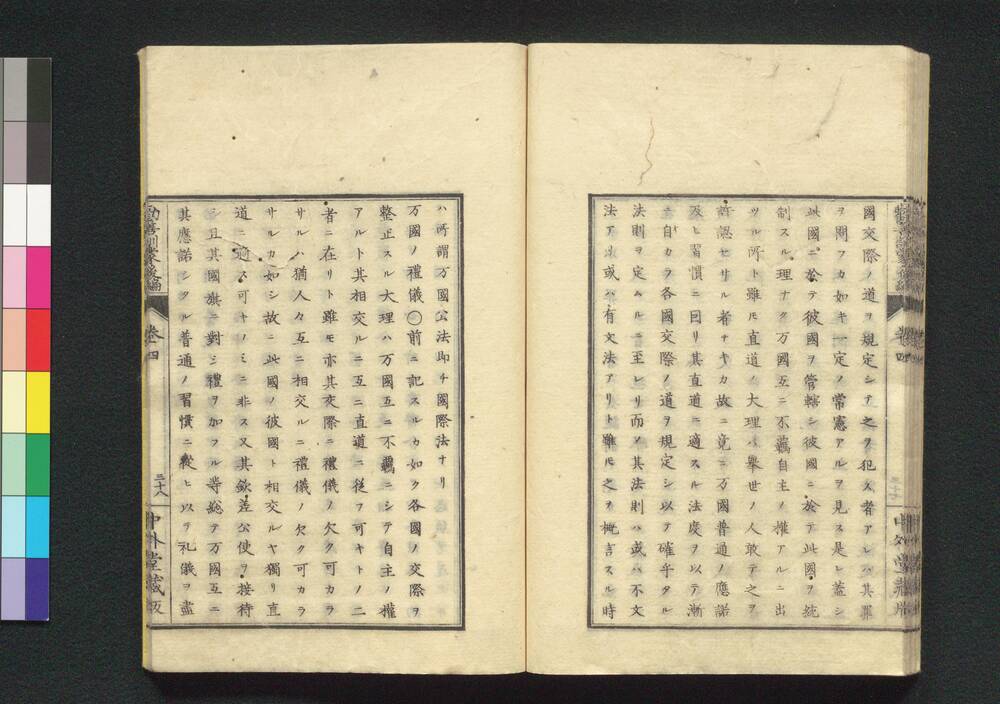 國交際ノ道ヲ規定シテ之ヲ犯ス者アレハ其罪
ヲ問フカ如キ一定ノ常憲アルヲ見ス是レ蓋シ
此國ニ於テ彼國ヲ管轄シ彼國ニ於テ此國ヲ統
制スル理ナク万國互ニ不羈自主ノ權アルニ出
ツル所ト雖モ直道ノ大理ハ擧世ノ人敢テ之ヲ
許認セサル者ナキカ故ニ竟ニ万國普通ノ應諾
及ヒ習慣ニ因リ其直道ニ適スル法度ヲ以テ漸
ニ自カラ各國交際ノ道ヲ規定シ以テ確乎タル
法則ヲ定ムルニ至レリ而シテ其法則ハ或ハ不文
法アリ或ハ有文法アリト雖モ之ヲ概言スル時
ハ所謂万國公法即チ國際法ナリ
万國ノ禮儀〇前ニ記スルカ如ク各國ノ交際ヲ
整正スル大理ハ万國互ニ不羈ニシテ自主ノ權
アルト其相交ルニ互ニ直道ニ従フ可キトノ二
者ニ在リト雖モ亦其交際ニ禮儀ノ欠ク可カラ
サルハ猶人々互ニ相交ルニ禮儀ノ欠ク可カラ
サルカ如シ故ニ此國ノ彼國ト相交ルヤ獨リ直
道ニ適ス可キノミニ非ス又其欽差公使ヲ接待
シ且其國旗ニ對シ禮ヲ加フル等総テ万國互ニ
其應諾シタル普通ノ習慣ニ從ヒ以テ礼儀ヲ盡
巻四
三十八
中外堂藏版